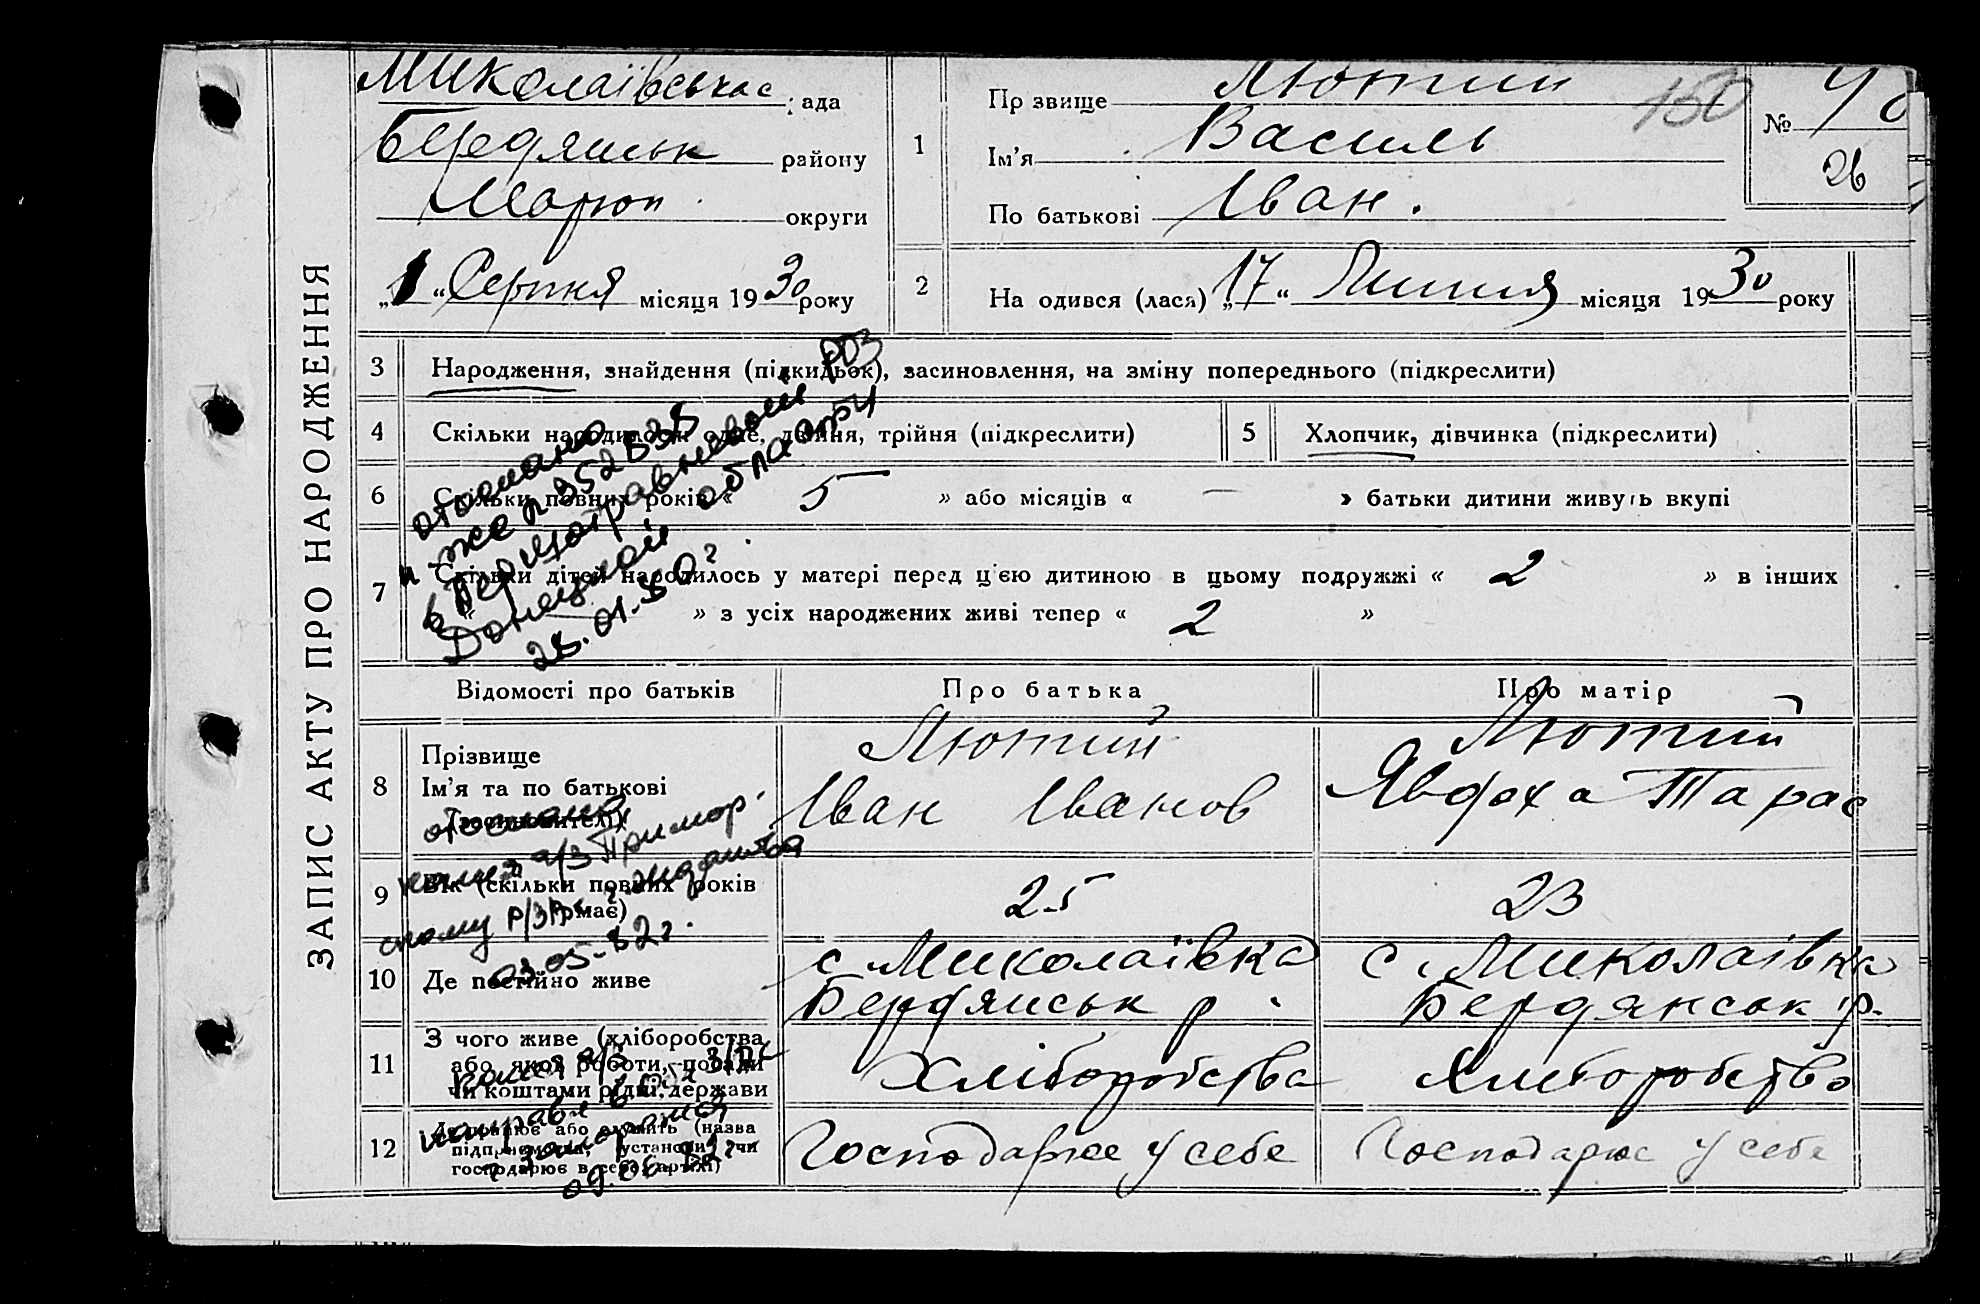 ЗАПИС АКТУ ПРО НАРОДЖЕННЯ
Миколаївська рада
Бердянськ району
Маріюп. округи
„1“ Серпня місяця 1930 року
1
Прізвище Лютий
Ім’я Василь
По батькові Іван.
150
№ 40
26
2
Народився (лася) „17“ Липня місяця 1930 року
3 Народження, знайдення (підкидьок), засиновлення, на зміну попереднього (підкреслити)
4 Скільки народилося: одне, двійня, трійня (підкреслити)
5 Хлопчик, дівчинка (підкреслити)
6 Скільки повних років « 5 » або місяців « — » батьки дитини живуть вкупі
7 Скільки дітей народилось у матері перед цією дитиною в цьому подружжі « 2 » в інших
« — » з усіх народжених живі тепер « 2 »
отослано
п-же n 352835
в Першотравневый РОЗ
Донецкой области
28.01.80г.
Відомості про батьків
Про батька
Про матір
8 Прізвище
Ім’я та по батькові
Лютий
Іван Іванов
Лютий
Явдоха Тарас
отослана
копия а/з Примор-
скому р/ЗАГС г. Жданова
03.05-82г.
9 Вік (скільки повних років має)
25
23
10 Де постійно живе
с Миколаївка
Бердянськ р.
с. Миколаівка
Бердянськ р.
11 З чого живе (хліборобства
або якої роботи, посади
чи коштами рідні, держави
Хліборобства
Хліборобство
копия а/з
направл в ЗАГС
09.06.82г.
12 Де працює або служить (назва
підприємства, установи чи
господарює в себе, артілі)
Господарює у себе
Господарює у себе